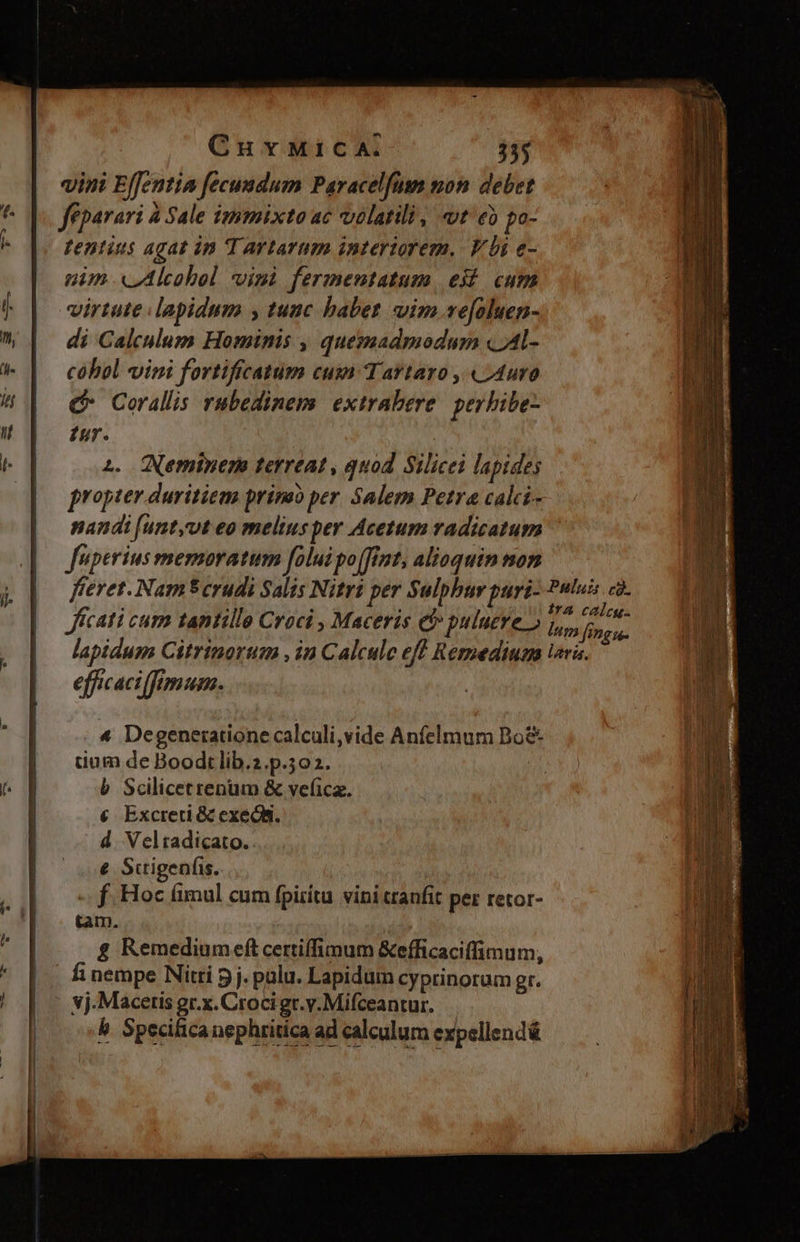 CHYMICA. 335
vini Essentia secundum Paracelsum non debet
separari à Sale immixto ac volatili, vt eò po-
tentius agat in Tartarum interiorem. Vbi e-
nim Alcohol vini fermentatum est cum
virtute lapidum, tunc habet vim resoluen-
di Calculum Hominis, quemadmodum Al-
cohol vini fortificatum cum Tartaro, Auro
& Corallis rubedinem extrahere perhibe-
tur.
2. Neminem terreat, quod Silicei lapides
propter duritiem primò per Salem Petræ calci-
nandi sunt, vt eo melius per Acetum radicatum
superius memoratum solui possint, alioquin non
fieret. Nam g crudi Salis Nitri per Sulphur puri-
ficati cum tantillo Croci, Maceris & puluere
lapidum Citrinorum, in Calculo est Remedium
efficacissimum.
Puluis cō-
tra calcu-
lum singu-
laris.
a Degeneratione calculi, vide Anselmum Boë-
tium de Boodt lib.2.p.302.
b Scilicet renum & vesicæ.
c Excreti & execti.
d Vel radicato.
e Strigensis.
f Hoc simul cum spiritu vini transit per retor-
tam.
g Remedium est certissimum & efficacissimum,
si nempe Nitri ℈ j. pulu. Lapidum cyprinorum gr.
vj. Maceris gr.x. Croci gr.v. Misceantur.
h Specifica nephritica ad calculum expellendū